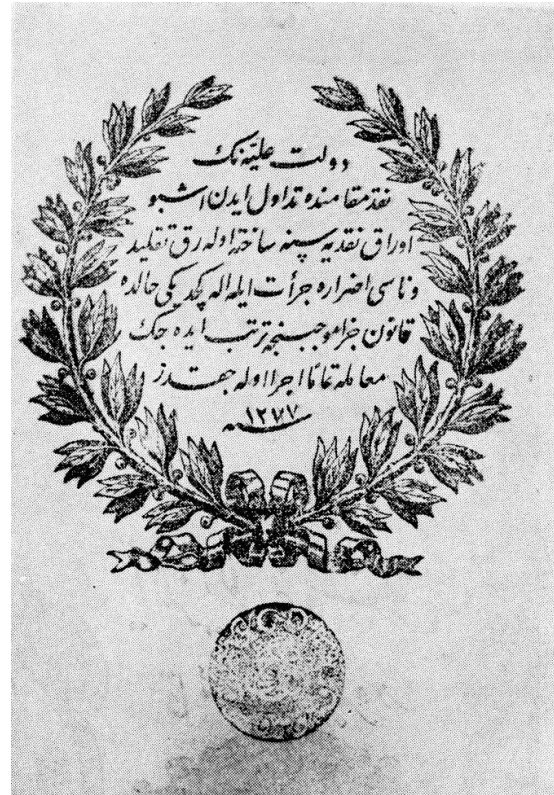 دولت علیه نك
نقد مقامنده تداول ایدن اشبو
اوراق نقدیه سنه ساخته اوله رق تقلید
وناسی اضراره جرأت ایله اله كچدیكی حالده
قانون جزا موجبنجه ترتب ایده جك
معامله تماما اجرا اوله جقدر
سنه ١٢٧٧